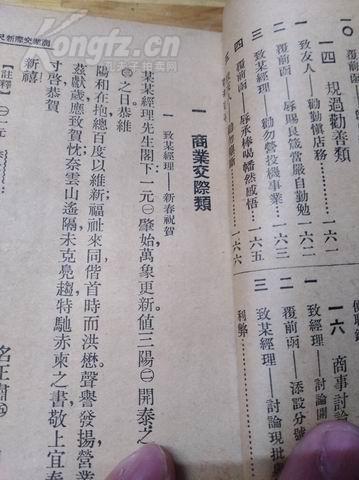 一〇
覆前函
一四 規過勸善類
一 致友人——勸勤愼店務……一六二
二 覆前函——辱賜良箴當嚴自勤勉……一六三
三 致某經理——勸勿營投機事業……一六五
四 覆前函——辱承棒喝幡然感悟……一六六
一六 商業討論
一 致經理——討論開
二 覆前函——添設分號
三 致某經理——討論現批
利弊
一 商業交際類
一 致某經理——新春祝賀
某某經理先生閣下：一元㊀肇始，萬象更新，値三陽㊁開泰之
㊂之日，恭維
陽和在抱，總百度以維新；福祉來同，偕首時而洪懋。聲譽發揚，營業
茲獻歲，應致賀忱，奈雲山遙隔，未克鳧趨，特馳赤柬之書，敬上宜春
寸啓，恭賀
新禧
名正肅
【註釋】㊀一元